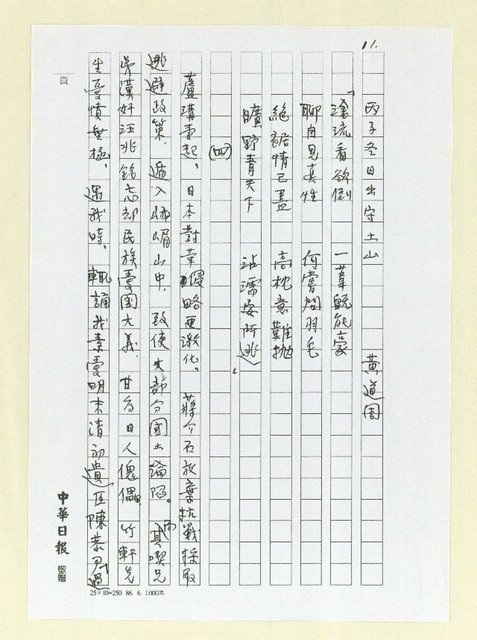 11.
丙子冬日出守土山　　黃道周
滄流看欲倒　一葦航能豪
聊自見真性　何嘗問羽毛
絕裾情已盡　高枕意難拋
曠野青天下　沾濡安所逃」
(四)
蘆溝事起、日本對華侵略更激化。蔣介石放棄抗戰採取
逃避政策、遁入峨嵋山中、致使大部分國土淪陷。其同喫兄
弟漢奸汪兆銘忘却民族憂國大義、甘為日人傀儡、竹軒先
生憂憤無極、遇我時、輒誦我素愛明末清初遺臣陳恭尹過
頁
中華日報 敬贈
25×10=250 86.6.1000本